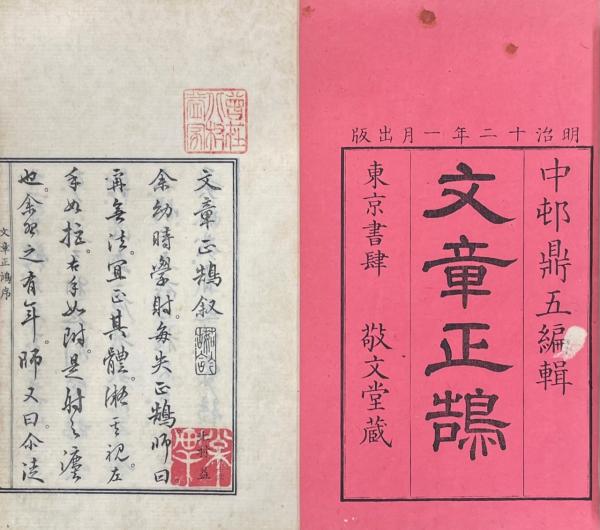 明治十二年一月出版
中邨鼎五編輯
文章正鵠
東京書肆 敬文堂藏
文章正鵠叙
余幼時學射。每失正鵠。師曰
無法。宜正其體。凝其視。左
手如拒。右手如附。是射之灋
也。余習之有年。師又曰。尒徒
文章正鵠序